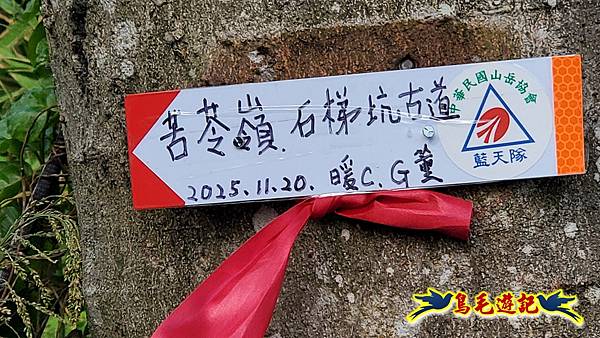 苦苓嶺.石梯坑古道
2025.11.20. 暖C.G董
中華民國山岳協會
藍天隊
鳥毛遊記